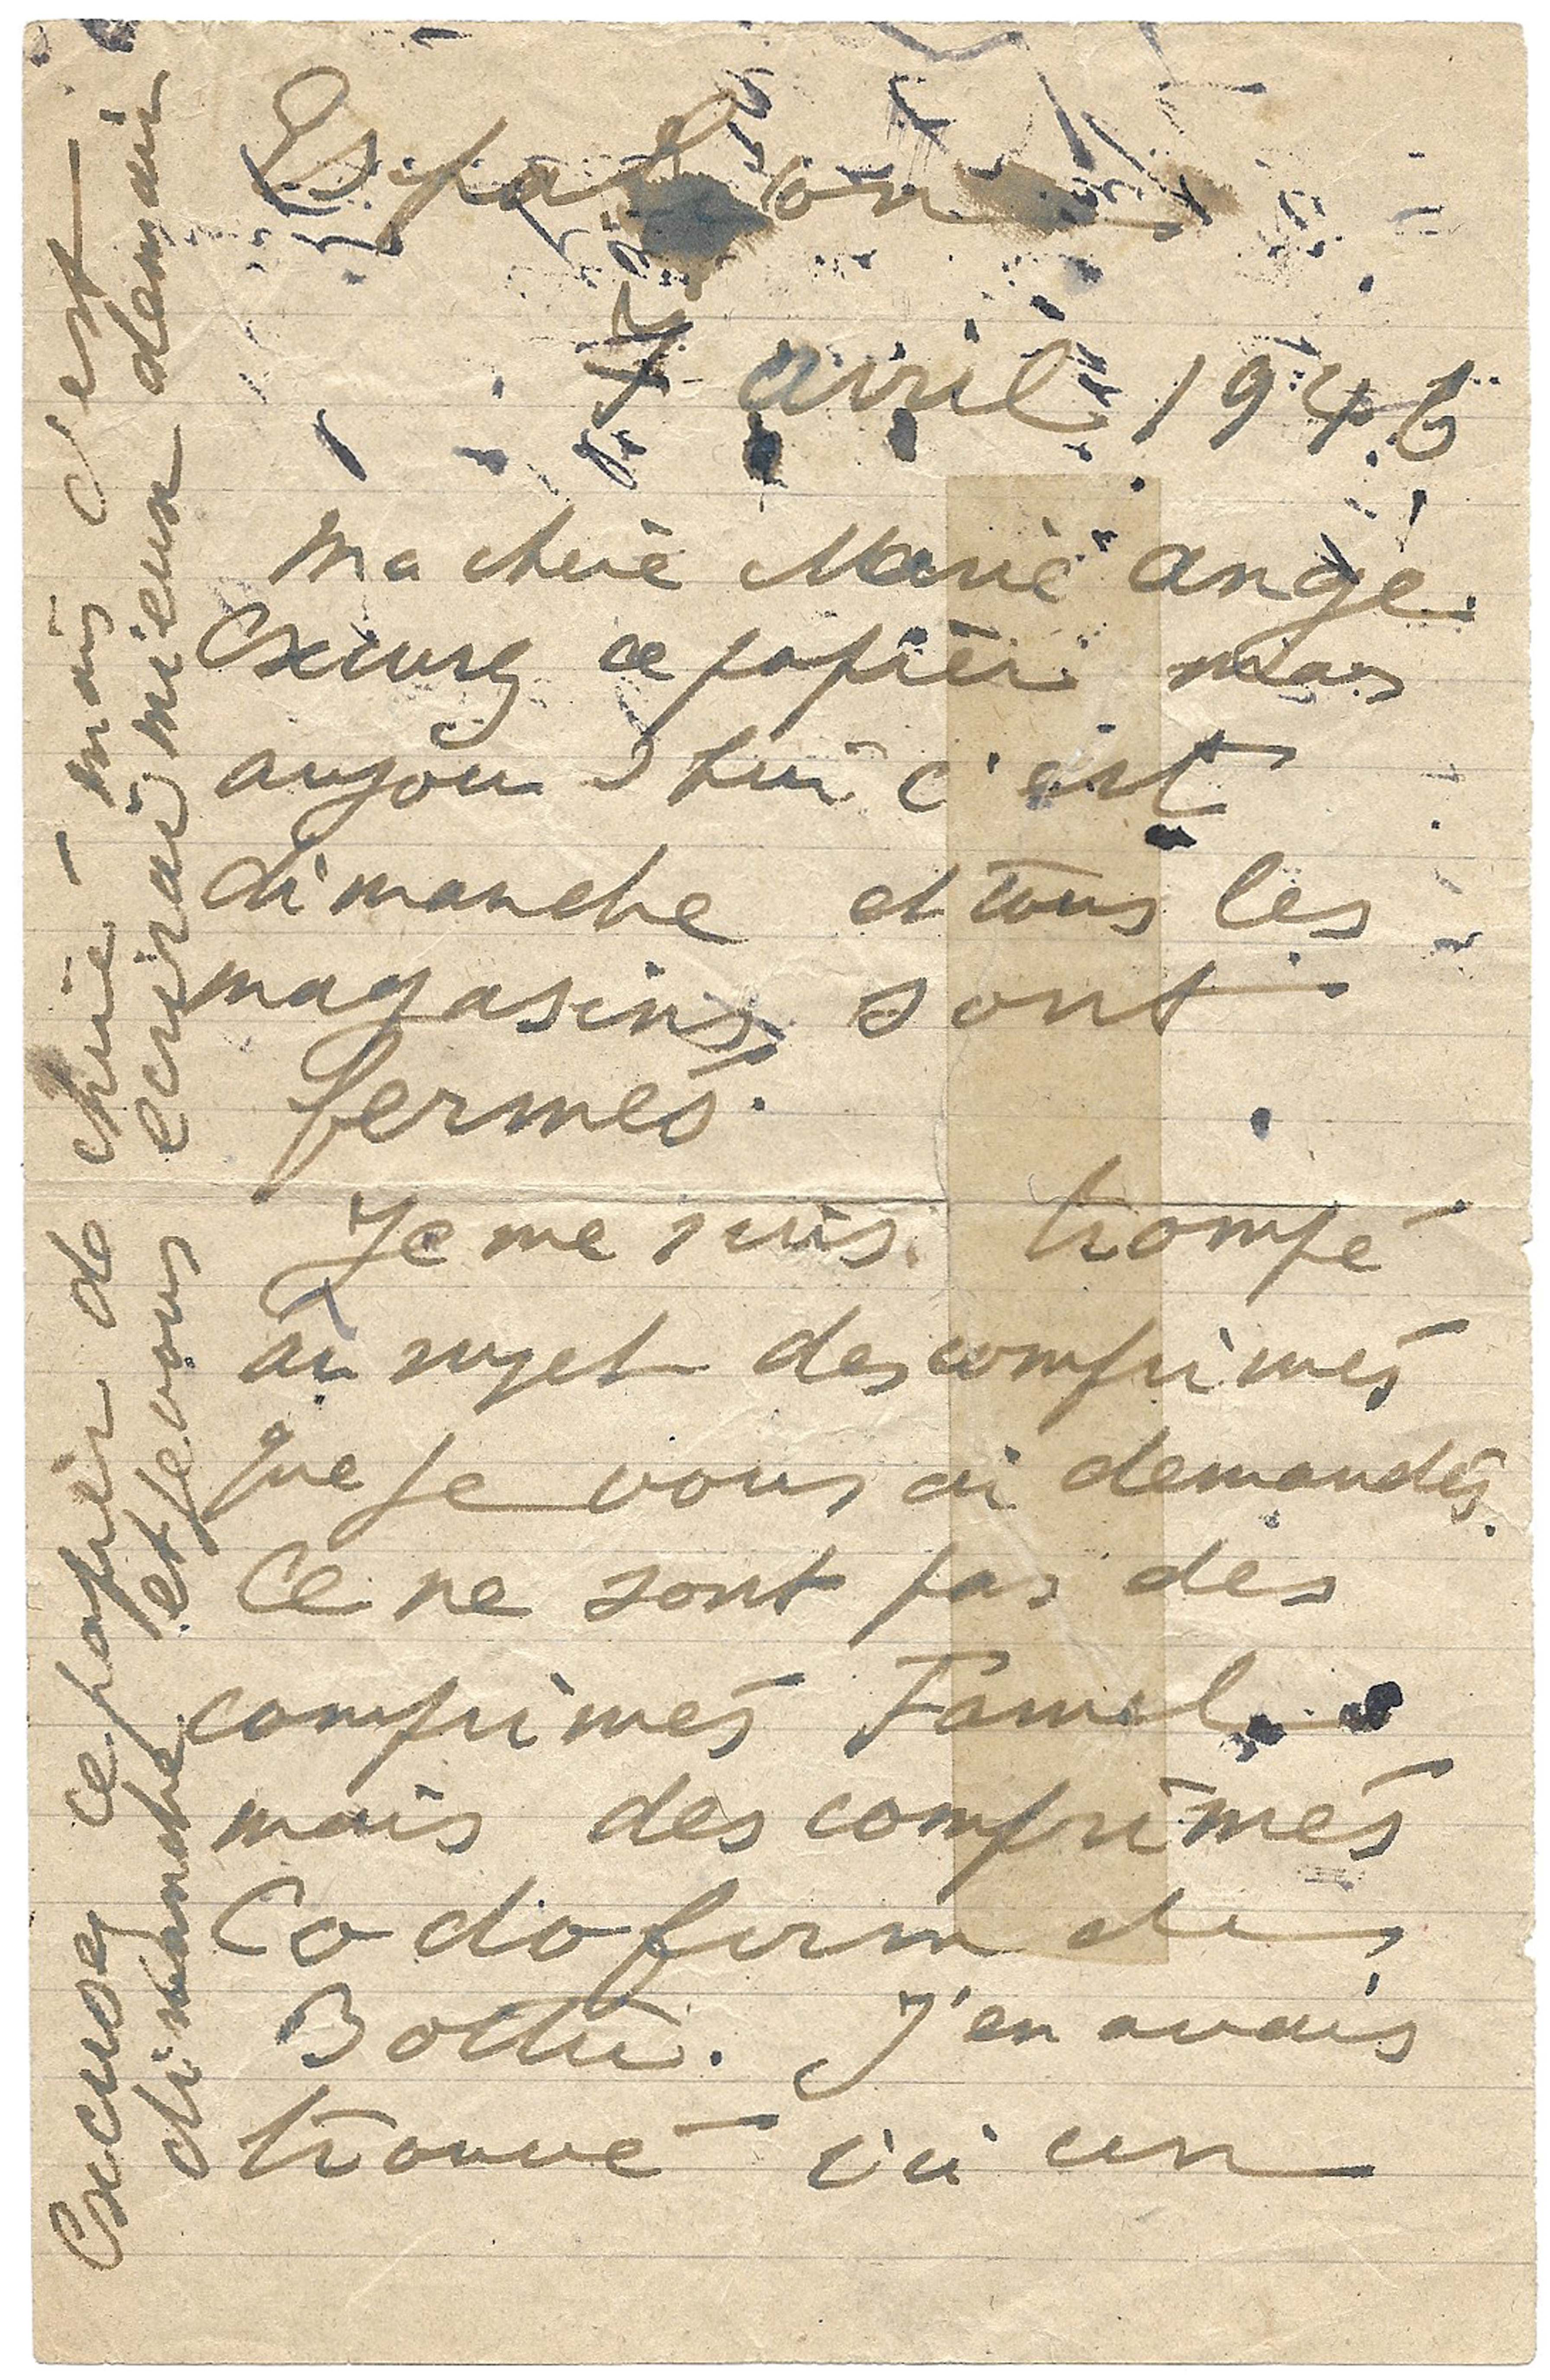 Espalion
7 avril 1946
Ma chere Marie Ange.
Excusez ce papier mais
aujourd'hui c'est
dimanche et tous les
magasins sont
fermés.
Je me suis trompé
au sujet des comprimés
que je vous ai demandés.
Ce ne sont pas des
comprimés Famel
mais des comprimés
Codoform de
Bottu. J'en avais
trouvé ici un
Excusez ce papier de chine mais c'est
dimanche et je vous ecrirai mieux demain